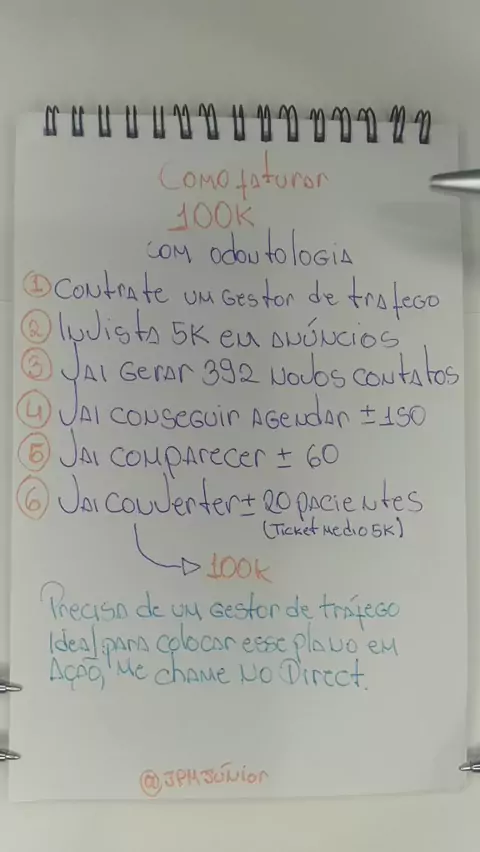 Como faturar
100K
com odontologia
1 Contrate um gestor de trafego
2 Invista 5K em anúncios
3 Vai gerar 392 novos contatos
4 Vai conseguir agendar ± 150
5 Vai comparecer ± 60
6 Vai converter ± 20 pacientes
(Ticket medio 5K)
100K
Precisa de um gestor de tráfego
ideal para colocar esse plano em
ação, me chame no Direct.
@JPMJúnior